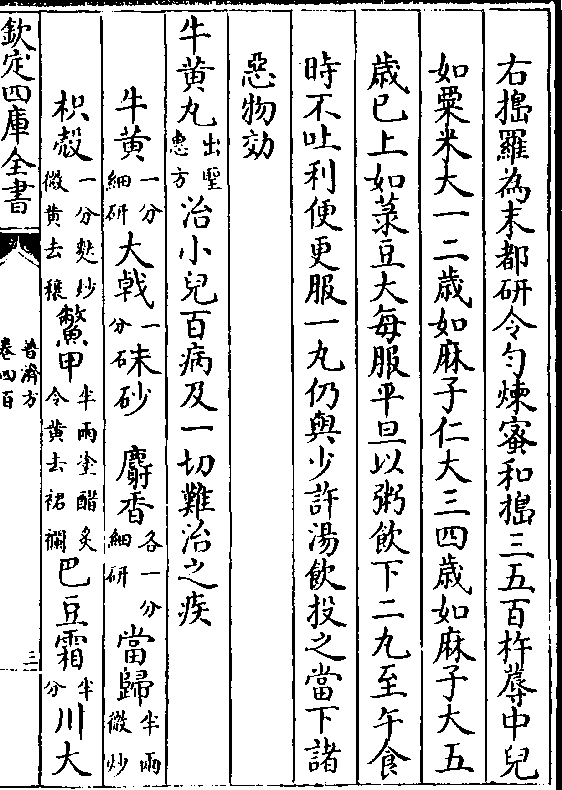 右搗羅為末都研令勻煉蜜和搗三五百杵蓐中兒
如粟米大一二歲如麻子仁大三四歲如麻子大五
歲已上如菉豆大每服平旦以粥飲下二丸至午食
時不吐利便更服一丸仍與少許湯飲投之當下諸
惡物効
牛黄丸出聖惠方治小兒百病及一切難治之疾
牛黄一分細研大戟一分硃砂麝香各一分細研當歸半兩微炒
枳殼一分麩炒微黄去穰鱉甲半兩塗醋炙令黄去裙襴巴豆霜半分川大
欽定四庫全書
普濟方
卷四百
三